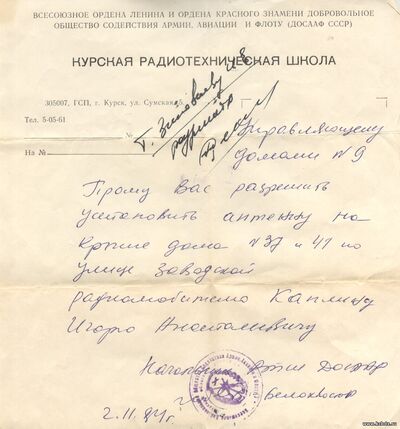 ВСЕСОЮЗНОЕ ОРДЕНА ЛЕНИНА И ОРДЕНА КРАСНОГО ЗНАМЕНИ ДОБРОВОЛЬНОЕ
ОБЩЕСТВО СОДЕЙСТВИЯ АРМИИ, АВИАЦИИ И ФЛОТУ (ДОСААФ СССР)
КУРСКАЯ РАДИОТЕХНИЧЕСКАЯ ШКОЛА
305007, ГСП, г. Курск, ул. Сумская
Тел. 5-05-61
№
На №
Управляющему
домами N 9
Прошу Вас разрешить
установить антенну на
крыше дома N 37 и 41 по
улице Заводской
радиолюбителю Каплину
Игорю Анатольевичу
2.11.84г.
www.kshcts.ru